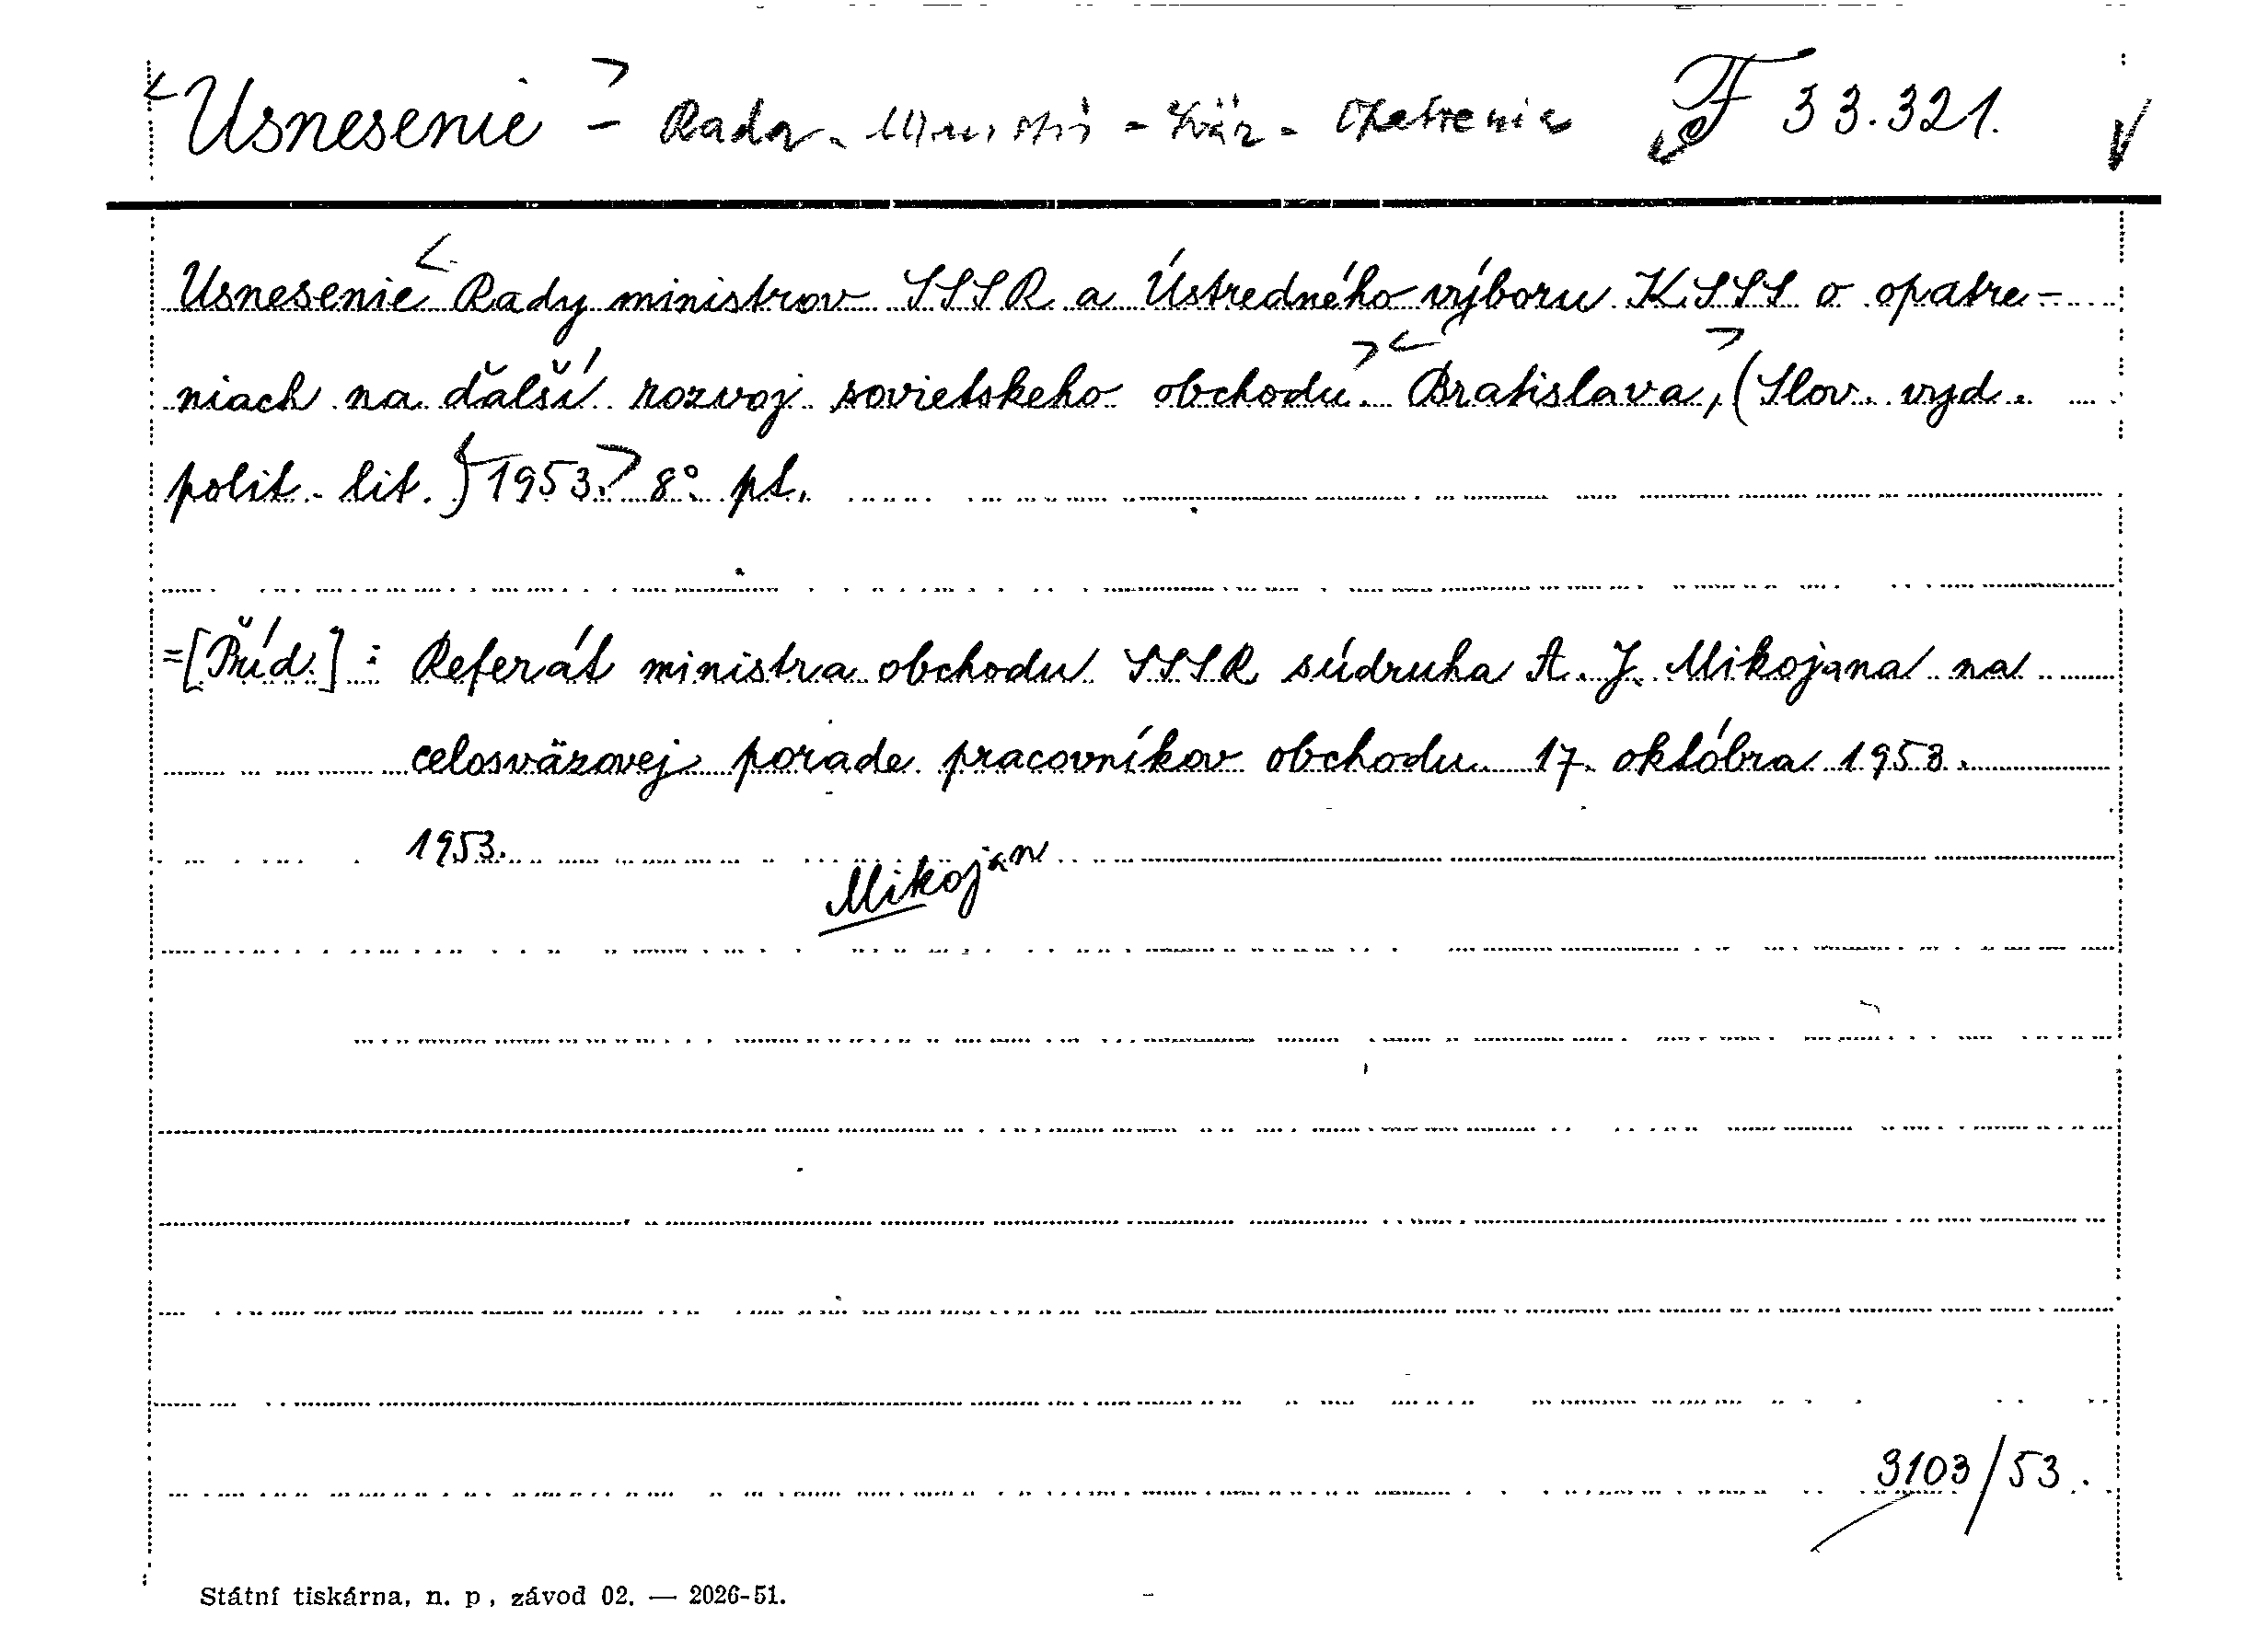 Usnesenie - Rada - Ministri - Sväz - Opatrenia F 33.321.
Usnesenie Rady ministrov SSSR a Ústredného výboru KSSS o opatre-
niach na ďalší rozvoj sovietskeho obchodu. Bratislava, (Slov. vyd.
polit. lit.) 1953. 8° pt.
=[Příd.]: Referát ministra obchodu SSSR súdruha A. J. Mikojana na
celosväzovej porade pracovníkov obchodu 17. októbra 1953.
1953.
Mikojan
3103/53.
Státní tiskárna, n. p., závod 02. — 2026-51.